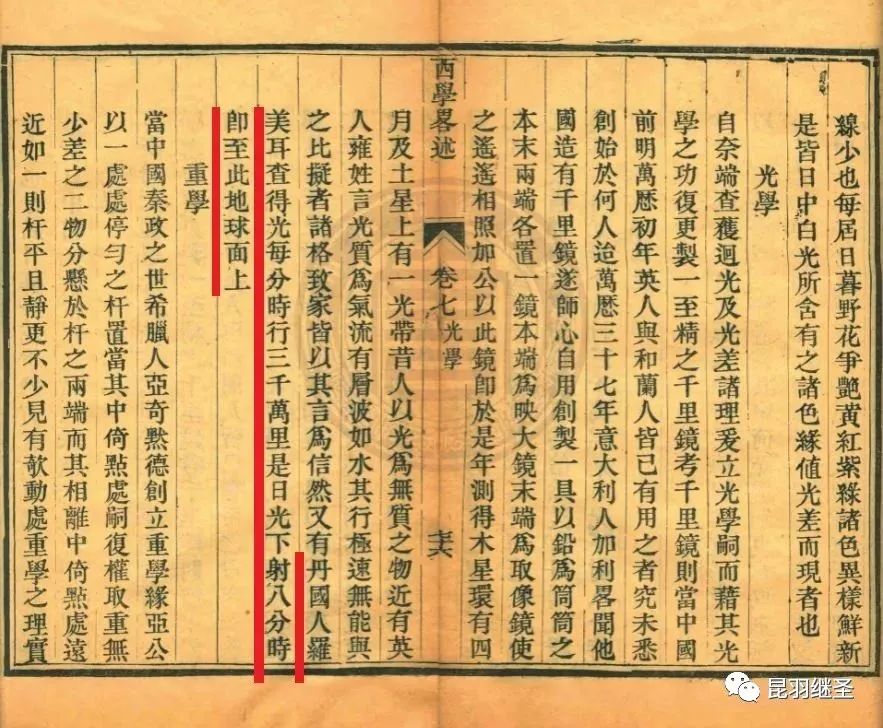 線少也每屆日暮野花爭艷黃紅紫綠諸色異樣鮮新
是皆日中白光所含有之諸色緣値光差而現者也
光學
自奈端查獲迴光及光差諸理爰立光學嗣而藉其光
學之功復更製一至精之千里鏡考千里鏡則當中國
前明萬曆初年英人與和蘭人皆已有用之者究未悉
創始於何人迨萬曆三十七年意大利人加利畧聞他
國造有千里鏡遂師心自用創製一具以鉛爲筒筒之
本末兩端各置一鏡本端爲映大鏡末端爲取像鏡使
之遙遙相照加公以此鏡卽於是年測得木星環有四
西學畧述
卷七光學
月及土星上有一光帶昔人以光爲無質之物近有英
人雍姓言光質爲氣流有層波如水其行極速無能與
之比擬者諸格致家皆以其言爲信然又有丹國人羅
美耳查得光每分時行三千萬里是日光下射八分時
卽至此地球面上
重學
當中國秦政之世希臘人亞奇黙德創立重學緣亞公
以一處處停勻之杆置當其中倚點處嗣復權取重無
少差之二物分懸於杆之兩端而其相離中倚點處遠
近如一則杆平且靜更不少見有欹動處重學之理實
昆羽继圣